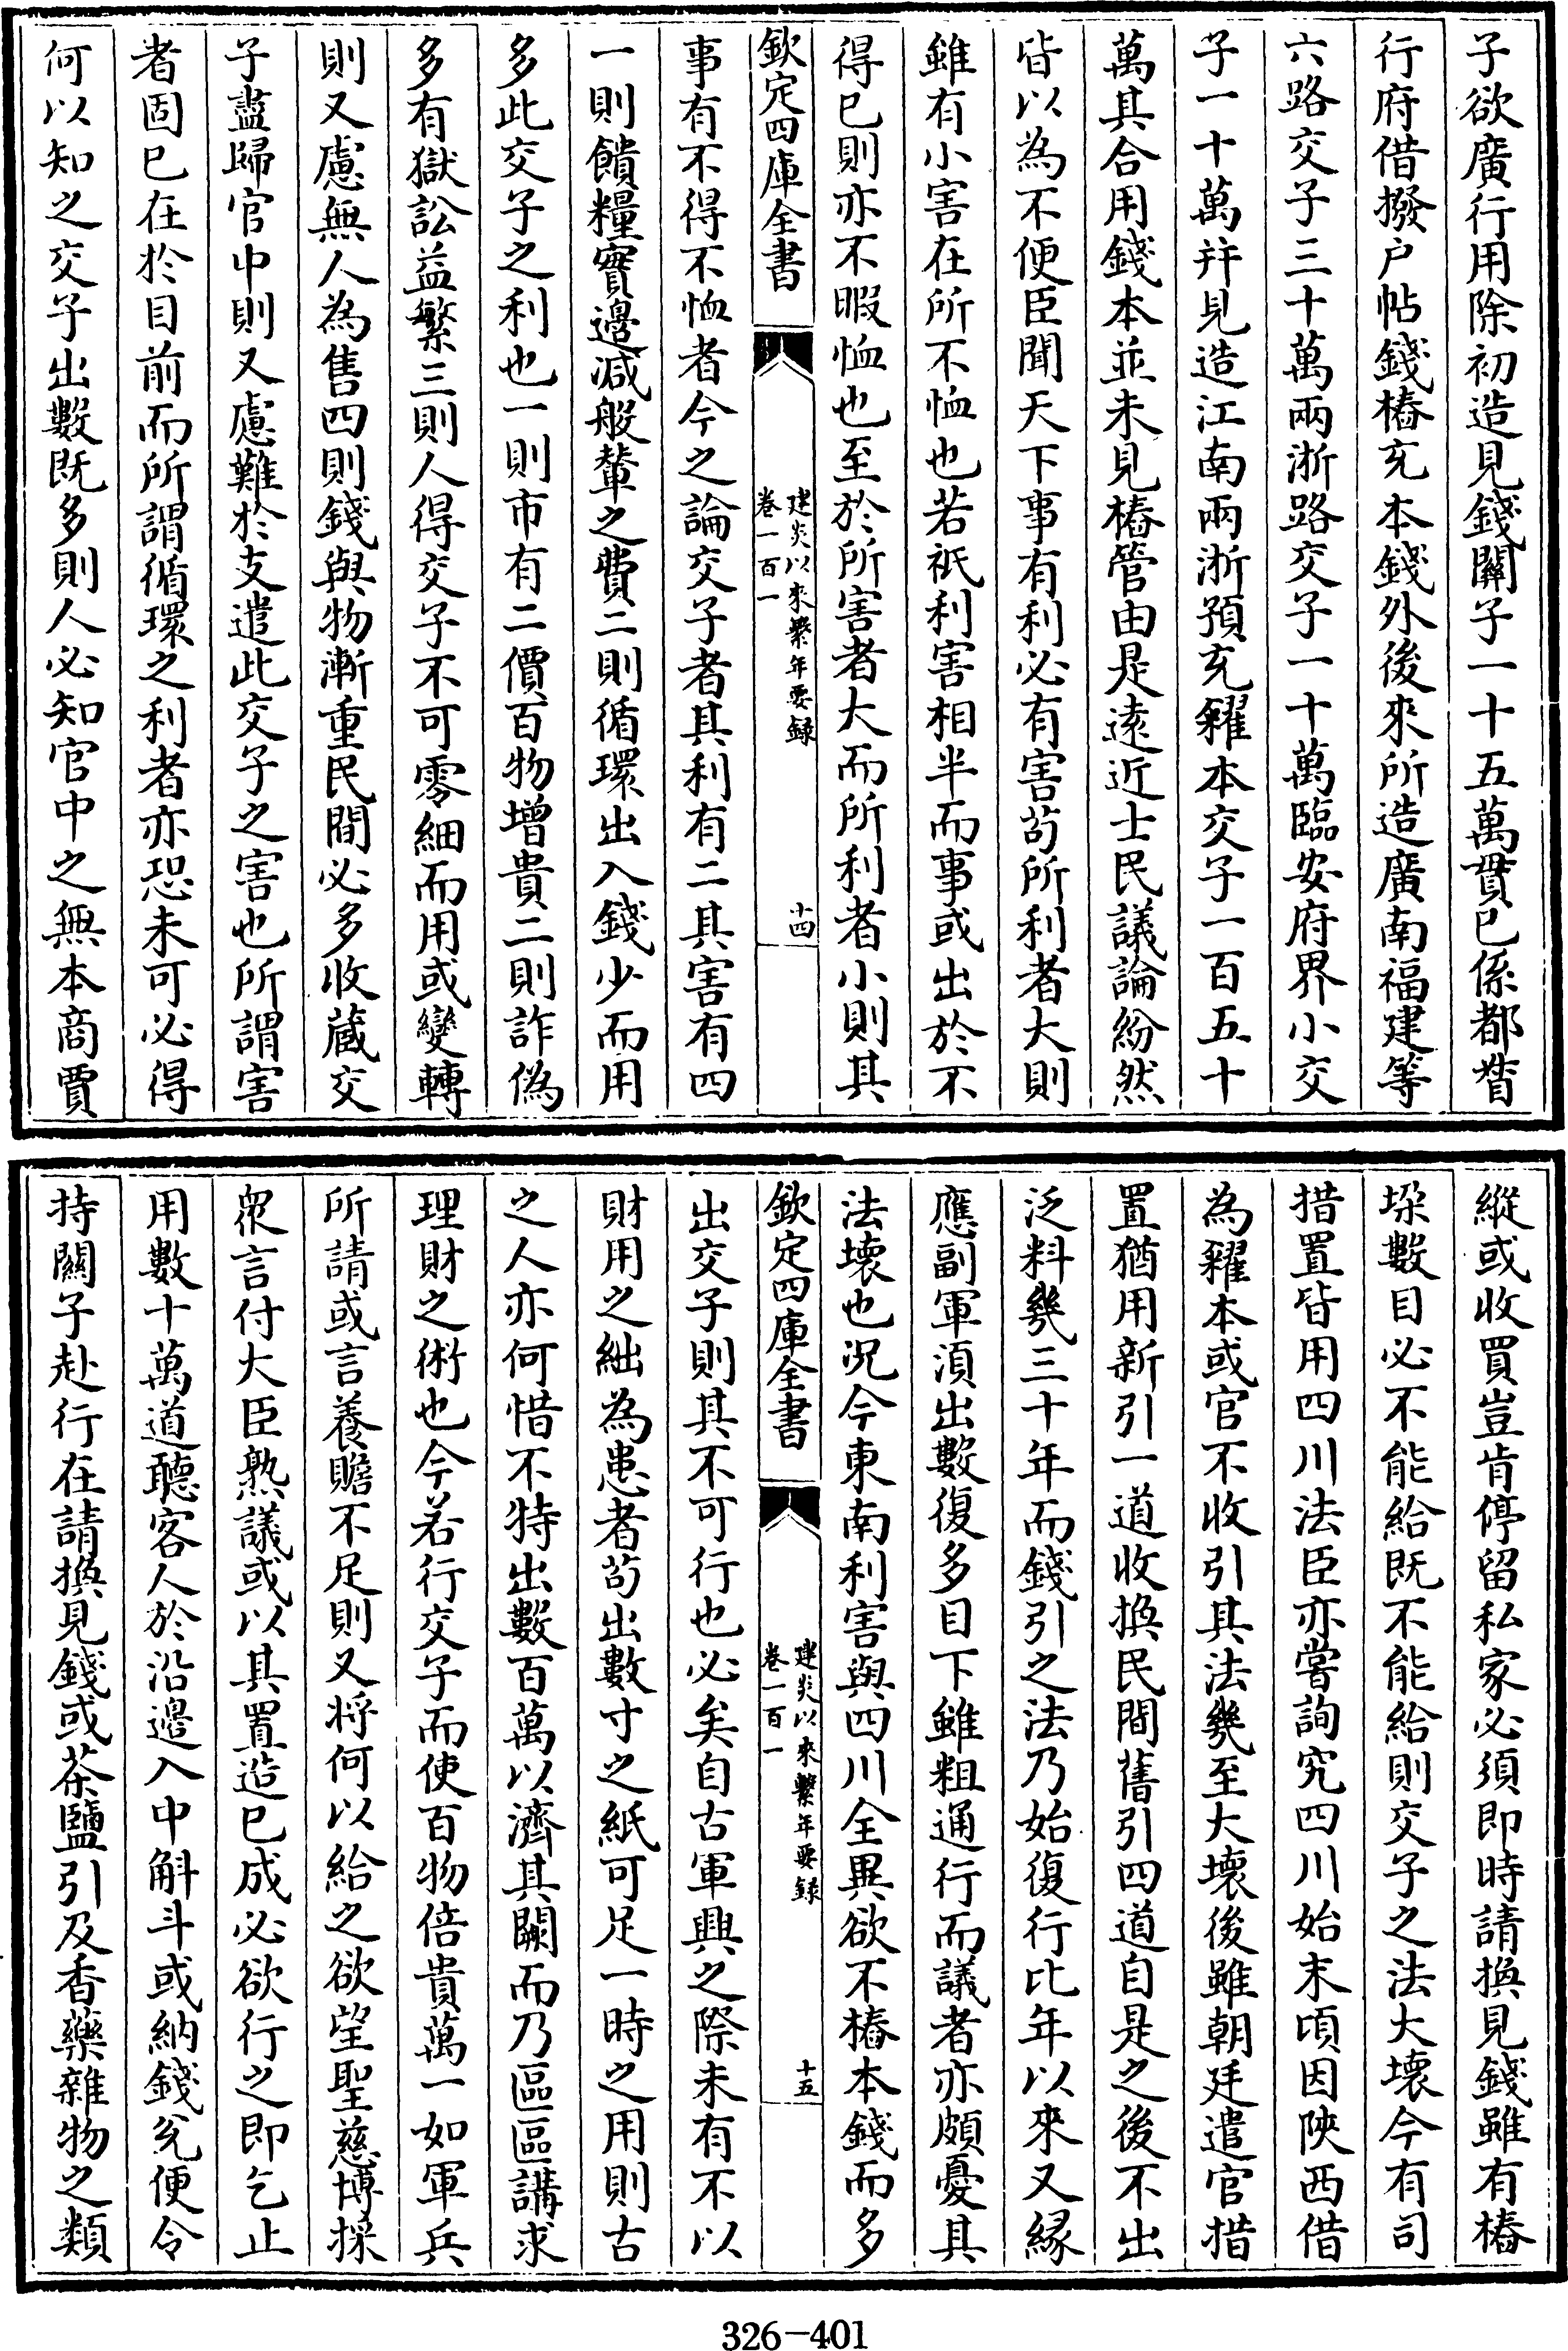 子欲廣行用除初造見錢關子一十五萬貫已係都督
行府借撥户帖錢樁充本錢外後來所造廣南福建等
六路交子三十萬兩浙路交子一十萬臨安府界小交
子一十萬并見造江南兩浙預充糴本交子一百五十
萬其合用錢本並未見樁管由是逺近士民議論紛然
皆以為不便臣聞天下事有利必有害苟所利者大則
雖有小害在所不恤也若祇利害相半而事或出於不
得已則亦不暇恤也至於所害者大而所利者小則其
欽定四庫全書
建炎以來繫年要録
卷一百一
十四
事有不得不恤者今之論交子者其利有二其害有四
一則饋糧實邊減般輦之費二則循環出入錢少而用
多此交子之利也一則市有二價百物增貴二則詐偽
多有獄訟益繁三則人得交子不可零細而用或變轉
則又慮無人為售四則錢與物漸重民間必多收蔵交
子盡歸官中則又慮難於支遣此交子之害也所謂害
者固已在於目前而所謂循環之利者亦恐未可必得
何以知之交子出數既多則人必知官中之無本商賈
縱或收買豈肯停留私家必須即時請換見錢雖有樁
垜數目必不能給既不能給則交子之法大壞今有司
措置皆用四川法臣亦嘗詢究四川始末頃因陜西借
為糴本或官不收引其法幾至大壞後雖朝廷遣官措
置猶用新引一道收換民間舊引四道自是之後不出
泛料幾三十年而錢引之法乃始復行比年以來又緣
應副軍湏出數復多目下雖粗通行而議者亦頗憂其
法壞也况今東南利害與四川全異欲不樁本錢而多
欽定四庫全書
建炎以來繫年要録
卷一百一
十五
出交子則其不可行也必矣自古軍興之際未有不以
財用之絀為患者苟出數寸之紙可足一時之用則古
之人亦何惜不特出數百萬以濟其闕而乃區區講求
理財之術也今若行交子而使百物倍貴萬一如軍兵
所請或言養贍不足則又將何以給之欲望聖慈博採
衆言付大臣熟議或以其置造已成必欲行之即乞止
用數十萬道聽客人於沿邉入中斛斗或納錢兊便令
持關子赴行在請換見錢或茶鹽引及香藥雜物之類
326-401